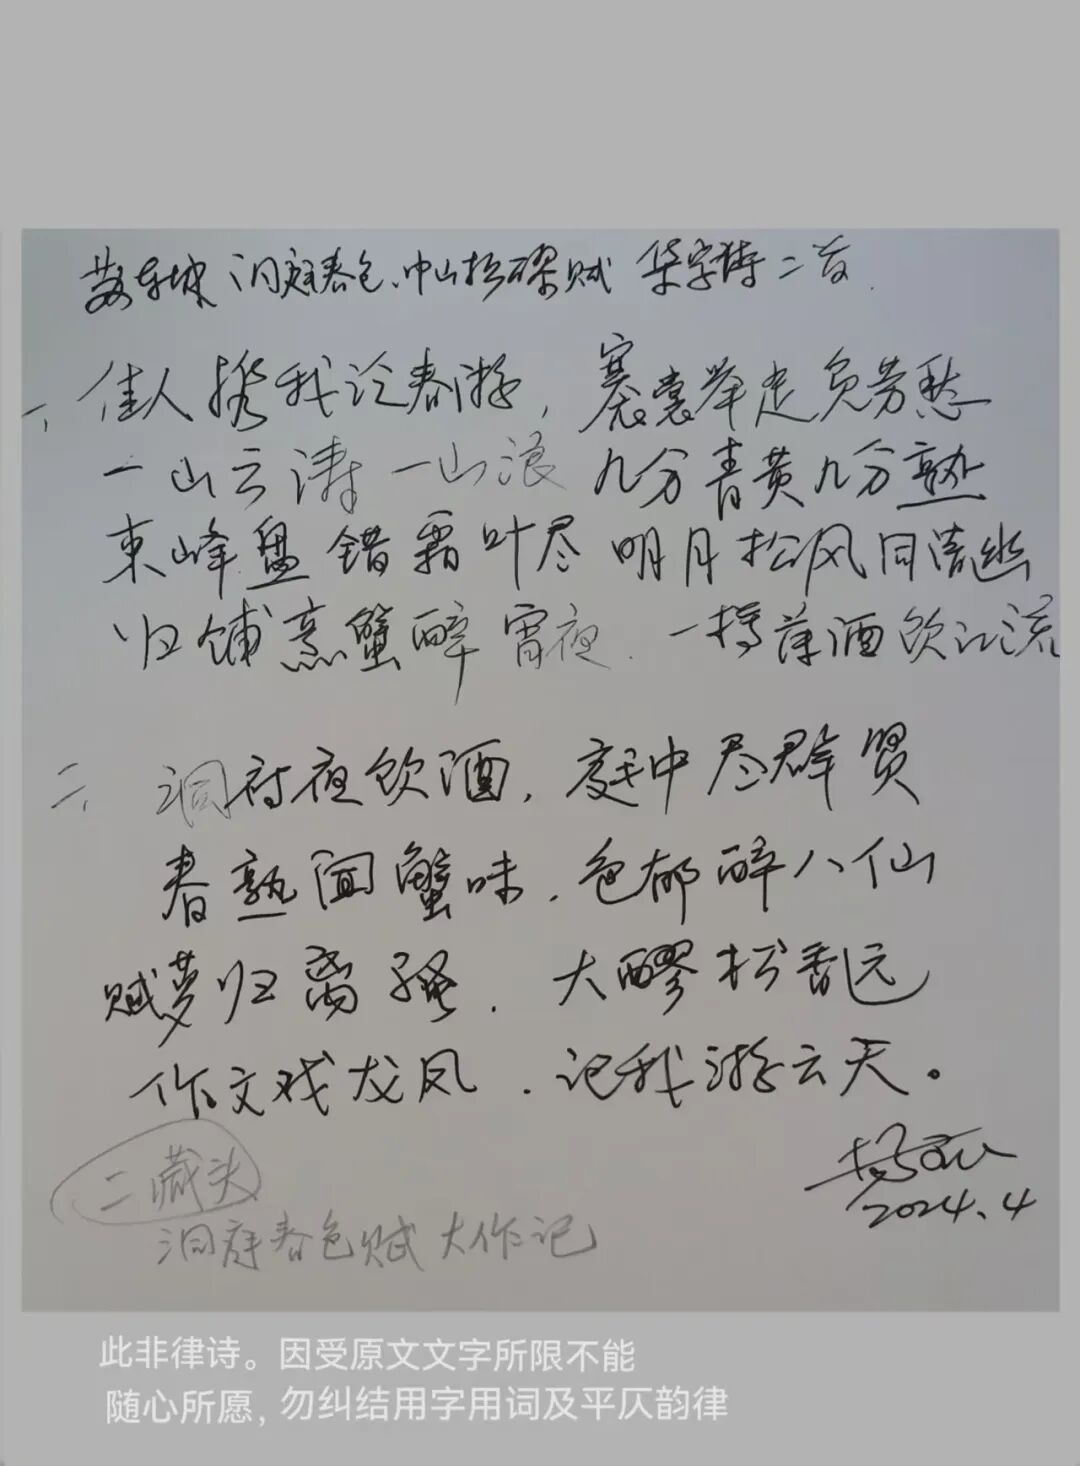 苏东坡 洞庭春色、中山松醪赋 集字诗二首
一、佳人携我论春游，褰裳举走负劳愁
一山云涛一山浪 九分青黄九分熟
东峰盘错霜叶尽 明月松风同清幽
归铺烹蟹醉宵夜．一樽薄酒饮江流
二、洞府夜饮酒，庭中尽群贤
春熟闻蟹味．色郁醉八仙
赋梦归离骚．大醪松香远
作文戏龙凤．记我游云天。
2024.4
二藏头
洞庭春色赋大作记
此非律诗。因受原文文字所限不能
随心所愿，勿纠结用字用词及平仄韵律